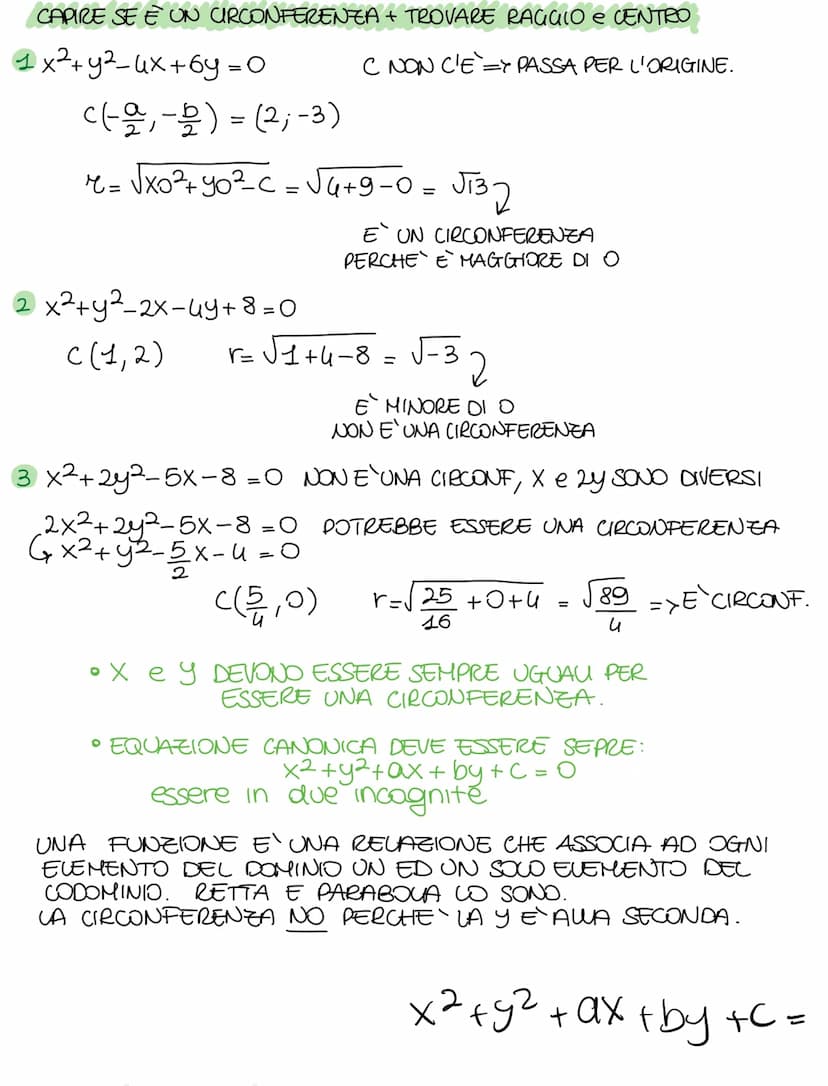 CAPIRE SE È UN CIRCONFERENZA + TROVARE RAGGIO e CENTRO
1 x²+y²-4x+6y=0 C NON C'E` => PASSA PER L'ORIGINE.
C(-a/2, -b/2) = (2; -3)
r = √(x0²+y0²-C) = √(4+9-0) = √13
E` UN CIRCONFERENZA
PERCHE` E` MAGGIORE DI 0
2 x²+y²-2x-4y+8=0
C(1,2) r= √(1+4-8) = √-3
E` MINORE DI 0
NON E` UNA CIRCONFERENZA
3 x²+2y²-5x-8=0 NON E` UNA CIRCONF, X e 2y SONO DIVERSI
2x²+2y²-5x-8=0 POTREBBE ESSERE UNA CIRCONFERENZA
x²+y²-5/2x-4=0
C(5/4, 0) r=√(25/16+0+4) = √89/4 => E` CIRCONF.
• X e y DEVONO ESSERE SEMPRE UGUALI PER
ESSERE UNA CIRCONFERENZA.
• EQUAZIONE CANONICA DEVE ESSERE SEPRE:
x²+y²+ax+by+c=0
essere in due incognite
UNA FUNZIONE E` UNA RELAZIONE CHE ASSOCIA AD OGNI
ELEMENTO DEL DOMINIO UN ED UN SOLO ELEMENTO DEL
CODOMINIO. RETTA E PARABOLA LO SONO.
LA CIRCONFERENZA NO PERCHE` LA Y E` ALLA SECONDA.
x²+y²+ax+by+c=